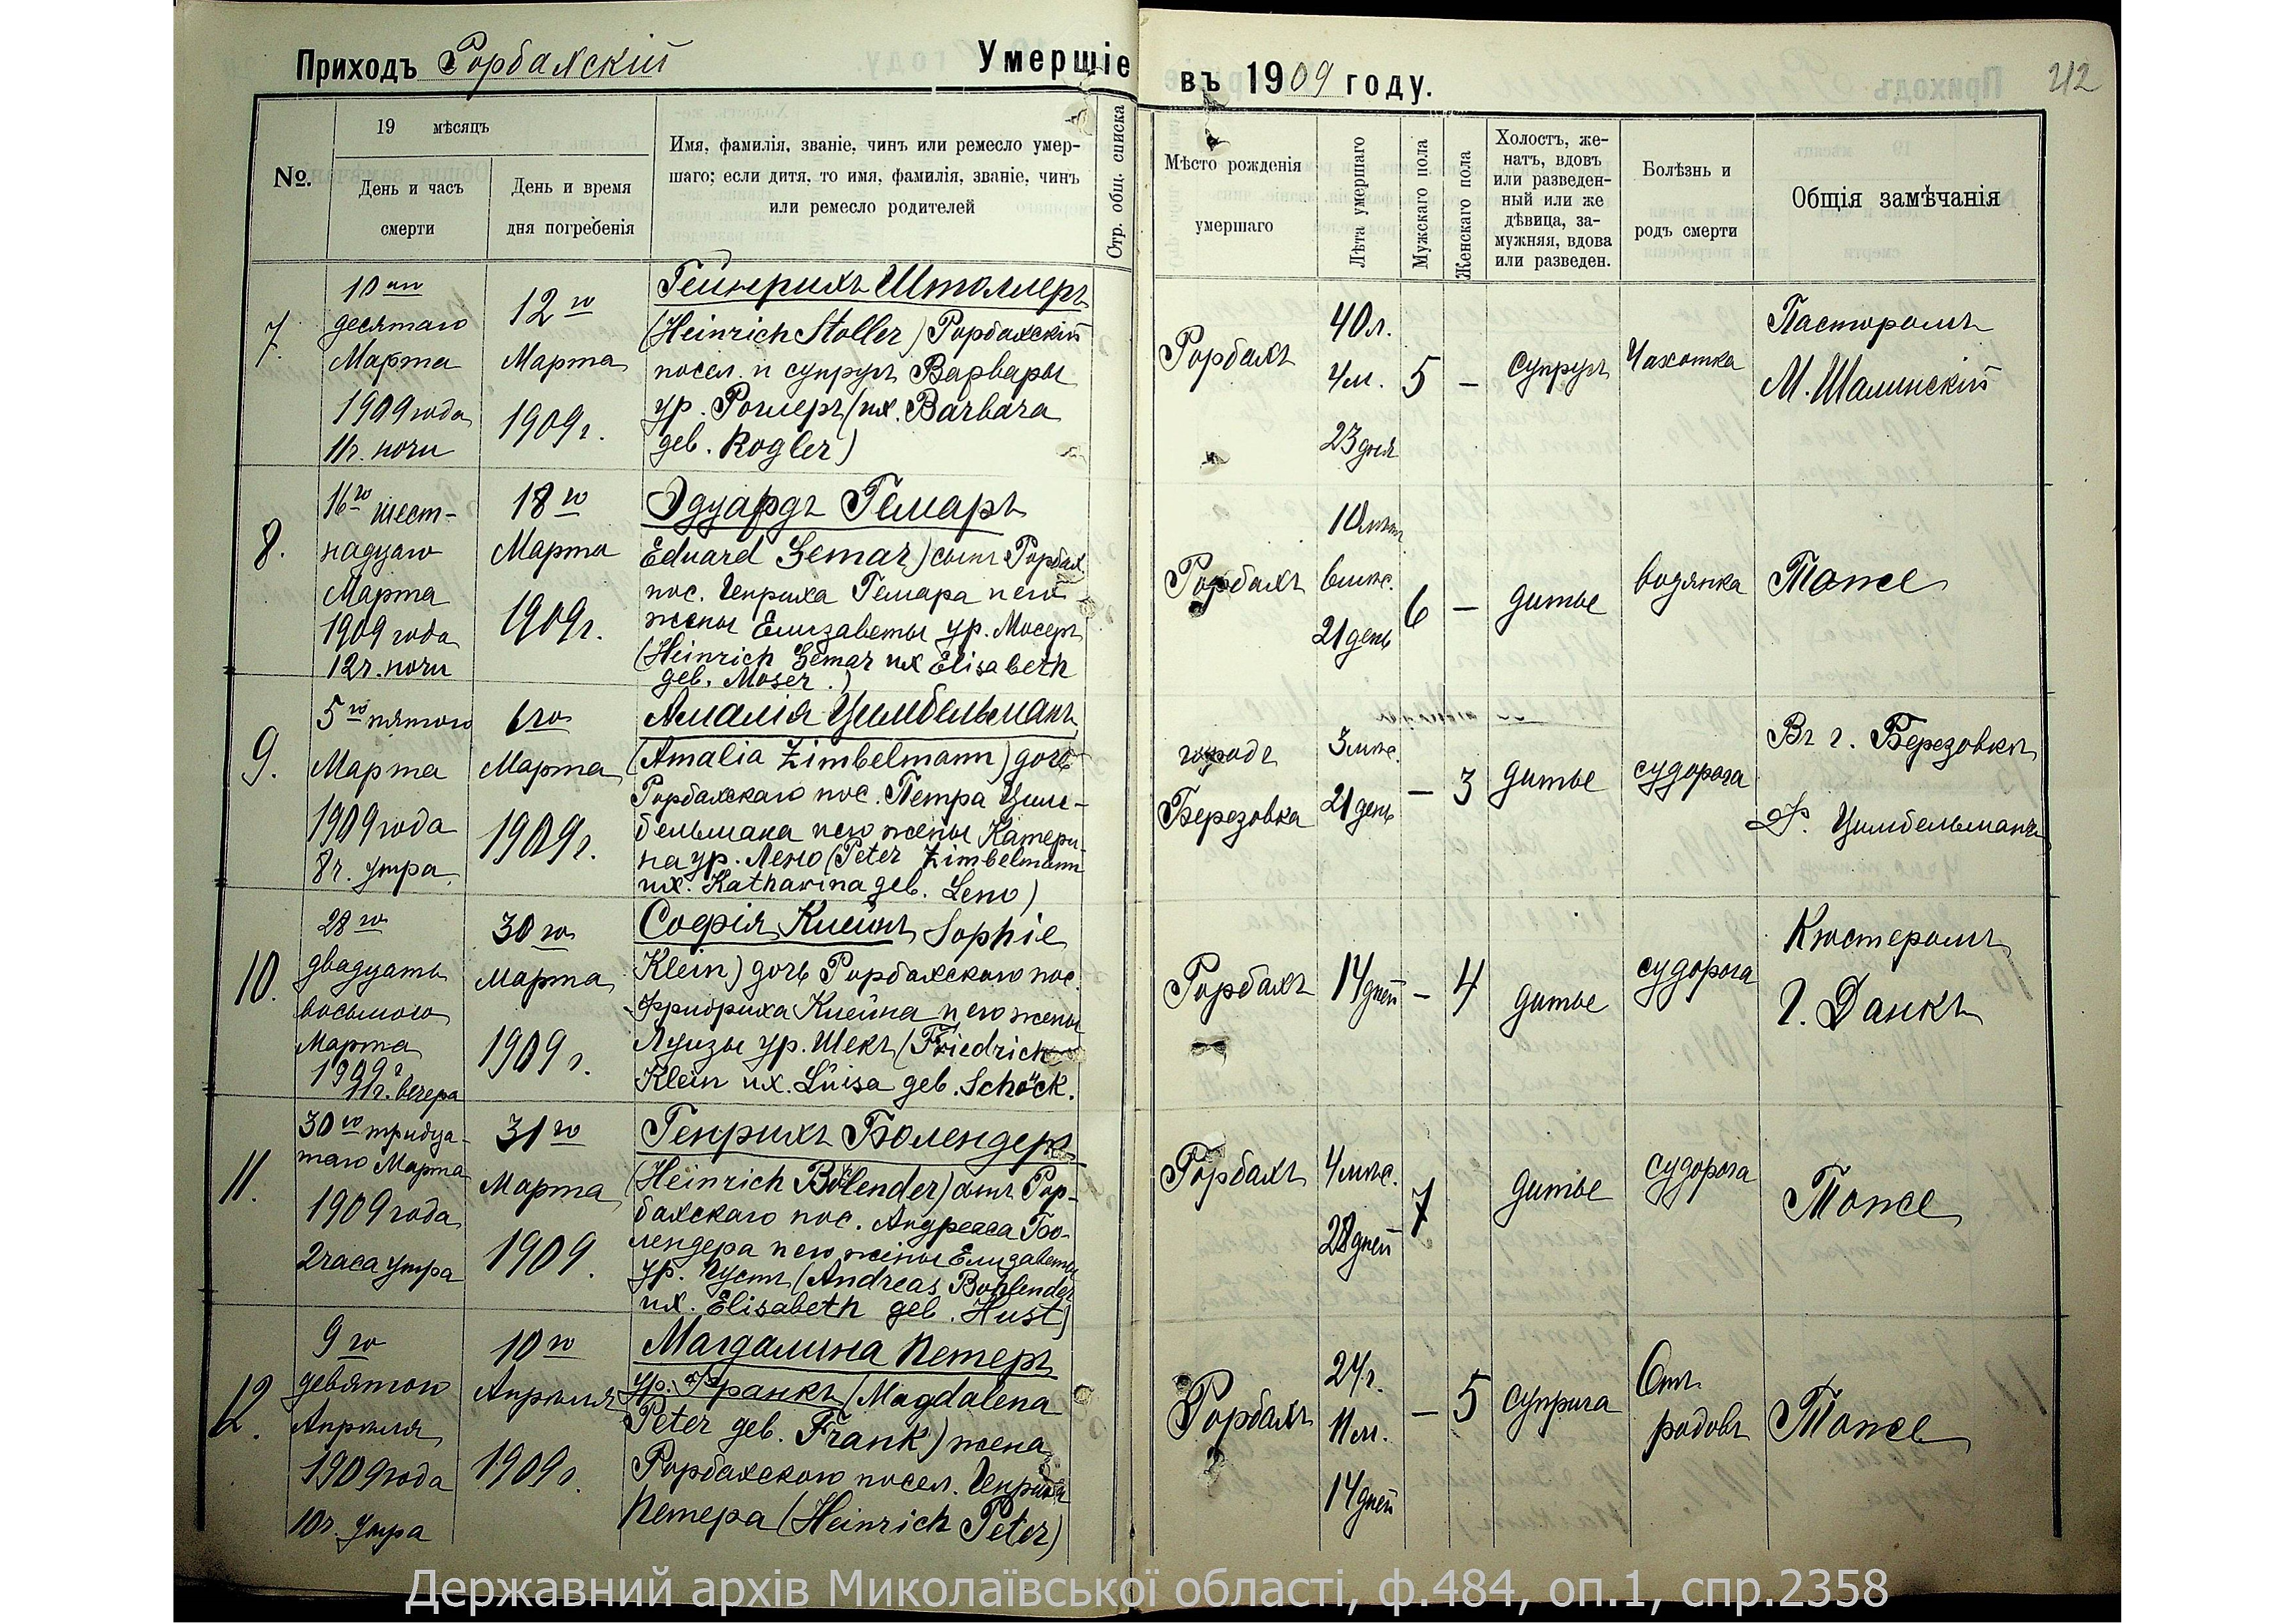 Приходъ Рорбахскій
Умершіе
въ 1909 году.
212
№.
19 мѣсяцъ
День и часъ
смерти
День и время
дня погребенія
Имя, фамилія, званіе, чинъ или ремесло умер-
шаго; если дитя, то имя, фамилія, званіе, чинъ
или ремесло родителей
Стр. общ. списка
Мѣсто рожденія
умершаго
Лѣта умершаго
Мужскаго пола
Женскаго пола
Холостъ, же-
натъ, вдовъ
или разведен-
ный или же
дѣвица, за-
мужняя, вдова
или разведен.
Болѣзнь и
родъ смерти
Общія замѣчанія
7.
10го
десятаго
Марта
1909 года
11ч. ночи
12го
Марта
1909г.
Гейнрихъ Штоллеръ
(Heinrich Stoller) Рорбахскій
посел. и супругъ Варвары
ур. Роглеръ (их. Barbara
geb. Rogler)
Рорбахъ
40л.
4м.
23 дня
5
–
Супругъ
Чахотка
Пасторомъ
М. Шалинскій
8.
16го шест-
надцаго
Марта
1909 года
12ч. ночи
18го
Марта
1909г.
Эдуардъ Гемаръ
Eduard Gemar) сынъ Рорбах.
пос. Генриха Гемара и его
жены Елизаветы ур. Мосеръ
(Heinrich Gemar их Elisabeth
geb. Moser.)
Рорбахъ
10лѣтъ
6мѣс.
21 день
6
–
дитье
водянка
Тоже
9.
5го пятого
Марта
1909 года
8ч. утра.
6го
Марта
1909г.
Амалія Цимбельманъ
(Amalia Zimbelmann) дочь
Рорбахскаго пос. Петра Цим-
бельмана и его жены Катери-
на ур. Лено (Peter Zimbelmann
их. Katharina geb. Leno)
городъ
Березовка
3мѣс.
21 день
–
3
дитье
судорога
Въ г. Березовкѣ
Ф. Цимбельманъ
10.
28го
двадцать
восьмого
Марта
1909г
11ч. вечера
30го
Марта
1909г.
Софія Клейнъ Sophie
Klein) дочь Рорбахскаго пос.
Фридриха Клейна и его жены
Луизы ур. Шекъ (Friedrich
Klein их. Luisa geb. Schöck.
Рорбахъ
14 дней
–
4
дитье
судорога
Кюстеромъ
Г. Данкъ
11.
30го тридца-
таго Марта
1909 года
2 часа утра
31го
Марта
1909.
ГенрихъБолендеръ
(Heinrich Bohlender) сынъ Рор-
бахскаго пос. Андреаса Бо-
лендера и его жены Елизаветы
ур. Густъ (Andreas Bohlender
их. Elisabeth geb. Hust)
Рорбахъ
4мѣс.
28 дней
7
дитье
судорога
Тоже
12.
9го
девятого
Апрѣля
1909 года
10ч. утра
10го
Апрѣля
1909г.
Магдалина Петеръ
ур. Франкъ (Magdalena
Peter geb. Frank) жена
Рорбахскаго посел. Генриха
Петера (Heinrich Peter)
Рорбахъ
24г.
11м.
14 дней
–
5
супруга
Отъ
родовъ
Тоже
Державний архів Миколаївської області, ф.484, оп.1, спр.2358